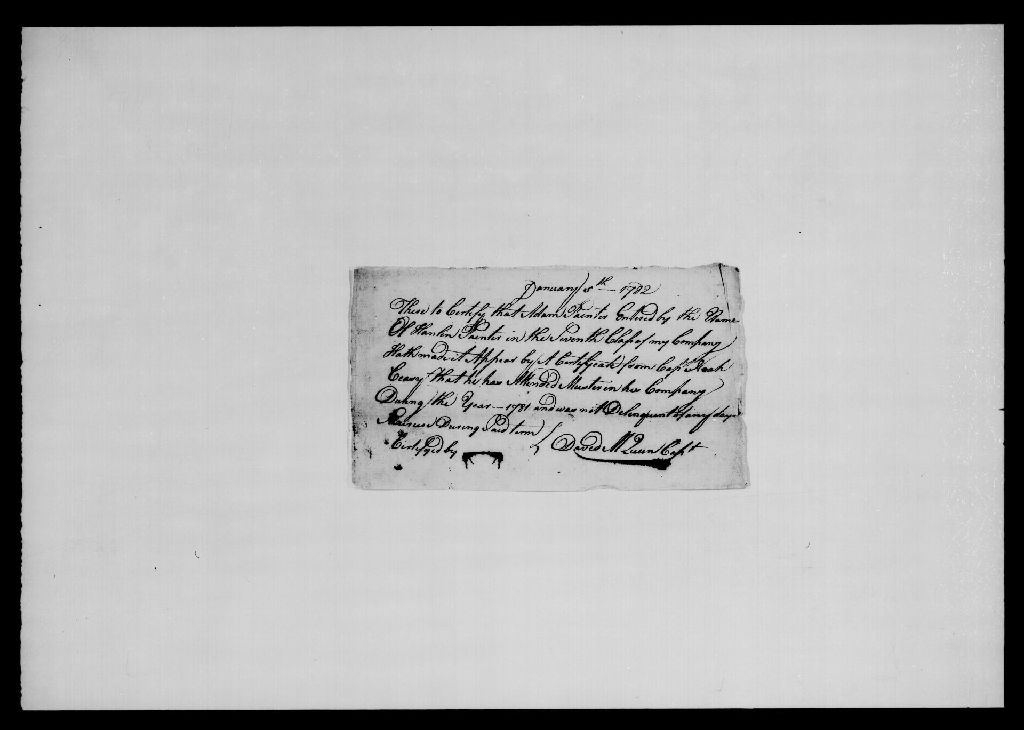 January 8th 1782
These to Certify that Adam Painter Entred by the Name
Of Hanlen Painter in the Seventh Class of my Company
Hath made it Appear by A Certificate from Capt
That he has Attended Muster in his Company
During the Year 1781 and was not Delinquent of any days
During Said term
Certifyed by { David McQueen Capt